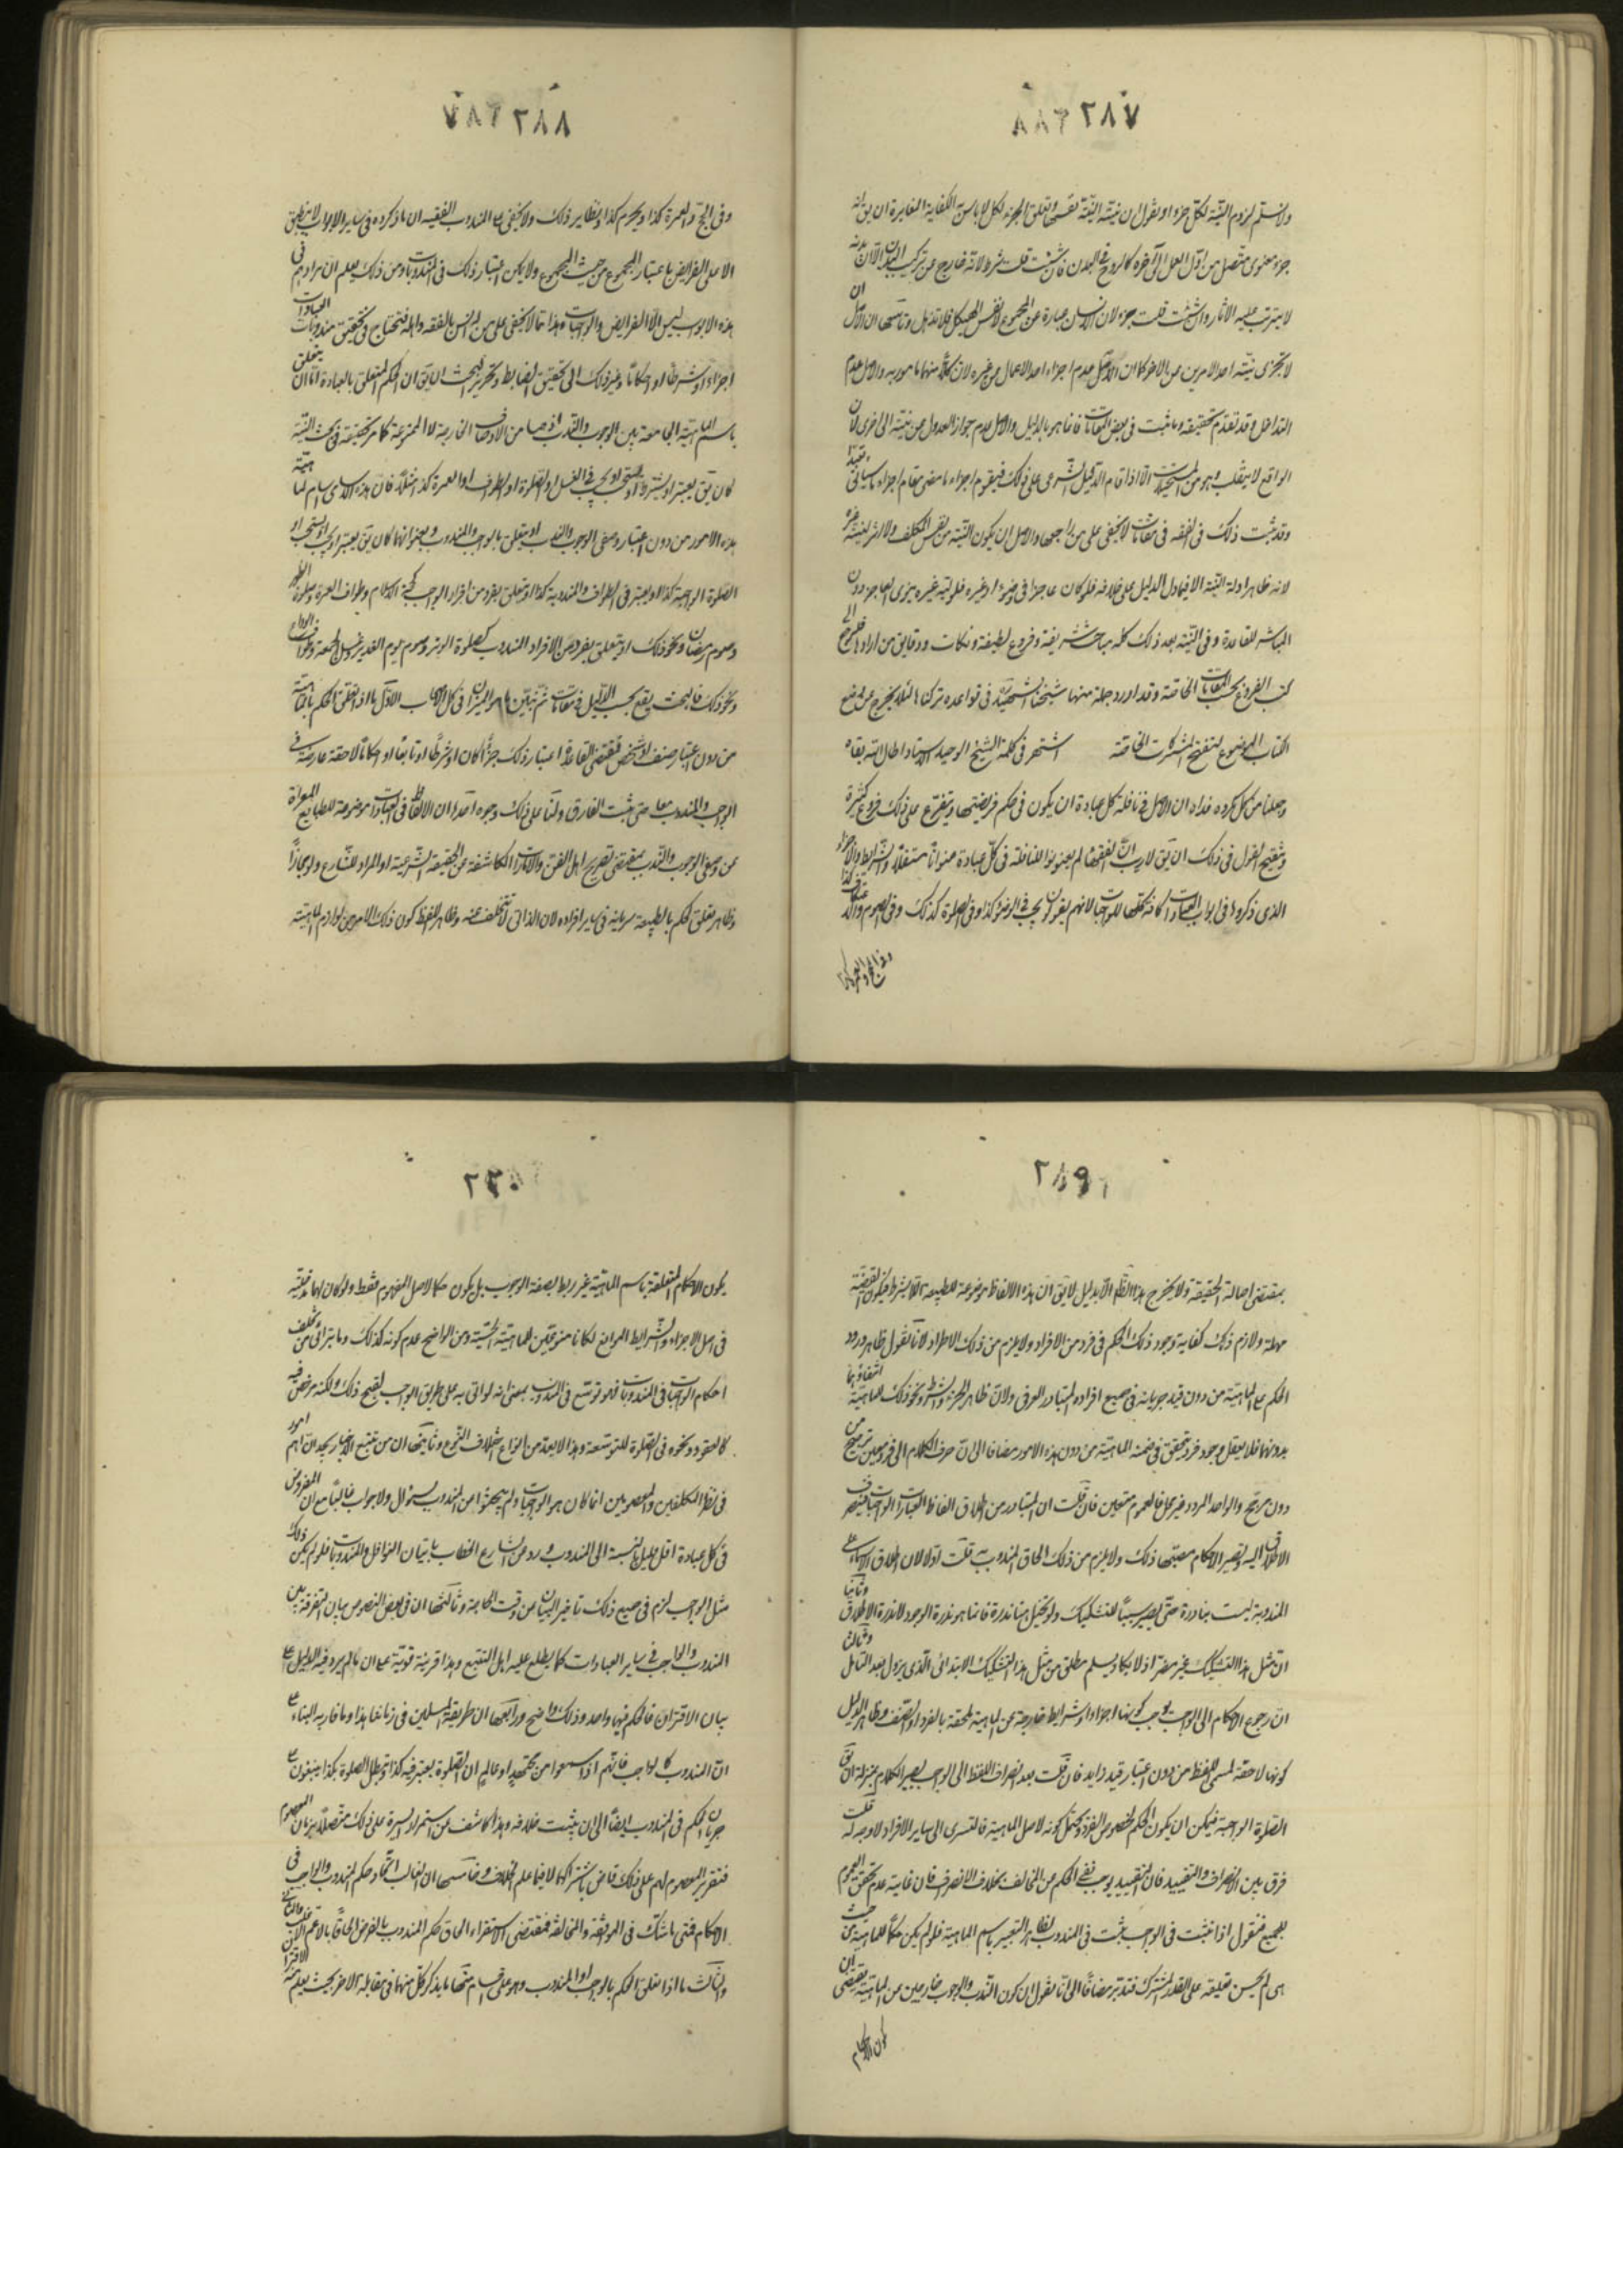 ٢٨٧
ولا نسلم لزوم النية لكل جزء او نقول ان نية النية نفسها وتعلق الجزء لكل لا باس به لكفاية المغايرة ان يق انه
جزء معنوى متصل من اول العمل الى آخره كالروح فى البدن فان شئت قلت شرط لانه خارج عن تركيب البدن الا ان بدنه
لا يترتب عليه الاثار وان شئت قلت جزء لان الانسان عبارة عن المجموع لا نفس الهيكل فلا تذهل وتاسعها ان الاصل ان
لا تجزى نية احد الامرين عن الاخر كما ان الاصل عدم اجزاء احد الاعمال عن غيره لان كلا منهما مامور به والاصل عدم
التداخل وقد تقدم تحقيقه وما ثبت فى بعض المقامات فانما هو بالدليل والاصل عدم جواز العدول من نية الى اخرى لان
الواقع لا ينقلب وهو من المستحيلات الا اذا قام الدليل الشرعى على ذلك فيقوم اجزاء ما مضى مقام اجزاء ما سياتى تعبدا
وقد ثبت ذلك فى الفقه فى مقامات لا يخفى على من راجعها والاصل ان يكون النية من نفس المكلف ولا اثر لنية غيره
لانه ظاهر ادلة النية الا فيما دل الدليل على خلافه فلو كان عاجزا فى وضوء او غيره فلو تيه غيره ينوى العاجز دون
المباشر للقاعدة وفى النية بعد ذلك كله مباحث شريفة وفروع لطيفة ونكات ودقايق من ارادها فليرجع الى
كتب الفروع بحسب المقامات الخاصة وقد اورد جملة منها شيخنا الشهيد فى قواعده تركناها لئلا يخرج عن وضع
الكتاب الموضوع لتنقيح المشتركات الخاصة اشتهر فى كلمة الشيخ الوحيد الاستاد اطال الله بقاه
وجعلنا من كل مكروه فداه ان الاصل فى نافلة كل عبادة ان يكون فى حكم فريضتها ويتفرع على ذلك فروع كثيرة
وتنقيح القول فى ذلك ان يق لا ريب ان الفقهاء لم يعنونوا للنافلة فى كل عبادة عنوانا مستقلا والشرايط والاجزاء
الذى ذكروها فى ابواب العبادات كافة كلها للواجبات لانهم يقولون يجب فى الوضوء كذا وفى الصلوة كذلك وفى الصوم والاعتكاف كذا
وفى الحج والعمرة كذا
٢٨٨
وفى الحج والعمرة كذا ويحرم كذا ونظاير ذلك ولا يخفى على المتدرب الفقيه ان ما ذكروه فى ساير الابواب لا ينطبق
الا على الفرايض باعتبار المجموع من حيث المجموع ولا يمكن اعتبار ذلك فى المندوبات ومن ذلك يعلم ان مرادهم فى
هذه الابواب ليس الا الفرايض والواجبات وهذا مما لا يخفى على من له انس بالفقه واهله فنحتاج فى تحقيق مندوبات العبادات
اجزاء او شرطا او احكاما وغير ذلك الى تحقيق الضابط وتحرير البحث ان يق ان الحكم المتعلق بالعبادة اما ان يتعلق
باسم الماهية الجامعة بين الوجوب والندب اذ هما من الاوصاف الخارجية لا المنوعة كما مر تحقيقه فى بحث النية
كان يق يعتبر او يشترط او يستحب او يجب فى الغسل او الصلوة او الطواف او العمرة كذا مثلا فان هذه الاسامى اسام لماهية
هذه الامور من دون اعتبار وصفى الوجوب والندب او يتعلق بالواجب والمندوب بعنوانهما كان يق يعتبر او يجب او يستحب فى
الصلوة الواجبة كذا او يعتبر فى الطواف والمندوبة كذا او يتعلق بفرد من افراد الواجب كحجة الاسلام وطواف العمرة وصلوة الظهر
وصوم رمضان ونحو ذلك او يتعلق بفرد من الافراد المندوب كصلوة الوتر وصوم يوم الغدير وغسل الجمعة وطواف الوداع
ونحو ذلك فالبحث يقع بحسب الدليل فى مقامات ثم نبين ما هو الميزان فى كل الابواب الاول ما اذا تعلق الحكم بالماهية
من دون اعتبار صنف او شخص فمقتضى القاعدة اعتبار ذلك جزءا كان او شرطا او تابعا او احكاما لاحقة عارضة فى
الواجب والمندوب معا حتى يثبت الفارق ولنا على ذلك وجوه احدها ان الالفاظ فى العبادات موضوعة للطبايع المعراة
عن وصفى الوجوب والندب بمقتضى تصريح اهل الفن والامارات الكاشفة عن الحقيقة الشرعية او المراد للشارع ولو مجازا
وظاهر تعلق الحكم بالطبيعة سريانه فى ساير افراده لان الذاتى لا تتخلف عنه وظاهر اللفظ كون ذلك الامر من لوازم الماهية
٢٨٩
بمقتضى اصالة الحقيقة ولا يخرج هذا الظهر الا بدليل لا يق ان هذه الالفاظ موضوعة للطبيعة لا بشرط فيكون القضية
مهملة ولازم ذلك كفاية وجود ذلك الحكم فى فرد من الافراد ولا يلزم من ذلك الاطراد لانا نقول ظاهر ورود
الحكم على الماهية من دون قيد جريانه فى جميع افراده المتبادر العرفى ولان ظاهر الجزء والشرط ونحو ذلك للماهية انتفاؤها
بدونها فلا يعقل وجود فرد يتحقق فى ضمنه الماهية من دون هذه الامور مضافا الى ان صرف الكلام الى فرد معين ترجيح من
دون مرجح والواحد المردد غير نافع للعموم متعين فان قلت ان المتبادر من اطلاق الفاظ العبادات الواجبات فينصرف
الاطلاق اليه وتصير الاحكام مصبها ذلك ولا يلزم من ذلك الحاق المندوب به قلت اولا لان اطلاق الاسماء على
المندوبة ليست بنادرة حتى يصير سببا للتشكيك ولو تخيل هنا ندرة فانما هو ندرة الوجود لا ندرة الاطلاق وثانيا
ان مثل هذا التشكيك غير مضر اذ لا يكاد يسلم مطلق من مثل هذا التشكيك الابتدائى الذى يزول بعد التامل وثالثا
ان رجوع الاحكام الى الواجب يوجب كونها اجزاء او شرايط خارجة عن الماهية لاحقة بالفرد او الصنف وظاهر الدليل
كونها لاحقة لمسمى اللفظ من دون اعتبار قيد زايد فان قلت بعد انصراف اللفظ الى الواجب يصير الكلام بمنزلة ان يق
الصلوة الواجبة فيمكن ان يكون الحكم لخصوص الفرد ويحتمل كونه لاصل الماهية فالتسرى الى ساير الافراد لا وجه له قلت
فرق بين الانصراف والتقييد فان التقييد يوجب نفى الحكم من المخالف بخلاف الانصراف فان غايته عدم تحقق العموم
للجميع فنقول اذا ثبت فى الواجب يثبت فى المندوب لظاهر التعبير باسم الماهية فلو لم يكن حكما للماهية من حيث
هى لم يحسن تعليقه على القدر المشترك فتدبر مضافا الى انا نقول ان كون الندب والوجوب خارجين من الماهية يقتضى ان
يكون الاحكام
٢٩٠
يكون الاحكام المتعلقة باسم الماهية غير ربط بصفة الوجوب بل يكون حكما لاصل المفهوم فقط ولو كان لهما مدخلية
فى اصل الاجزاء والشرايط الموانع لكانا منوعين للماهية الجنسية ومن الواضح عدم كونه كذلك وما يترائى من تخلف
احكام الواجبات فى المندوبات فهو توسع فى المندوب بمعنى انه لو اتى به على طريق الواجب لصح ذلك ولكنه مرخص فيه
كالقعود ونحوه فى الصلوة للتوسعة وهذا لا يعد من انواع اختلاف النوع وثانيها ان من تتبع الاخبار يجد ان اهم امور
فى نظر المكلفين والمعصومين انما كان هو الواجبات ولم يبحثوا من المندوب بسؤال ولا جواب غالبا مع ان المفروض
فى كل عبادة اقل قليل بالنسبة الى المندوب وورد من الشارع الخطاب باتيان النوافل والمندوبات فلو لم يكن ذلك
مثل الواجب لزم فى جميع ذلك تاخير البيان عن وقت الحاجة وثالثها ان فى بعض النصوص بيان التفرقة بين
المندوب والواجب فى ساير العبادات كما يطلع عليه اهل التتبع وهذا قرينة قوية على ان ما لم يرد فيه الدليل على
بيان الافتراق فالحكم فيها واحد وذلك واضح ورابعها ان طريقة المسلمين فى زماننا هذا وما قاربه البناء على
ان المندوب كالواجب فانهم اذا سمعوا من مجتهد او عالم ان الصلوة يعتبر فيه كذا وتبطل الصلوة بكذا يبنون على
جريان الحكم فى المندوب ايضا الى ان يثبت خلافه وهذا كاشف عن استمرار السيرة على ذلك متصلا بزمان المعصوم
فتقرير المعصوم لهم على ذلك قاض باشتراكهما الا فيما علم الخلاف وخامسها ان الغالب اتحاد حكم المندوب والواجب فى
الاحكام فمتى ما شك فى الموافقة والمخالفة فمقتضى الاستقراء الحاق حكم المندوب بالفرض الحاقا بالاعم الاغلب
والثالث ما اذا تعلق الحكم بالواجب او المندوب وهو على اقسام منها ما يذكر كل منهما فى مقابلة الاخر بحيث يعلم منه الافتراق